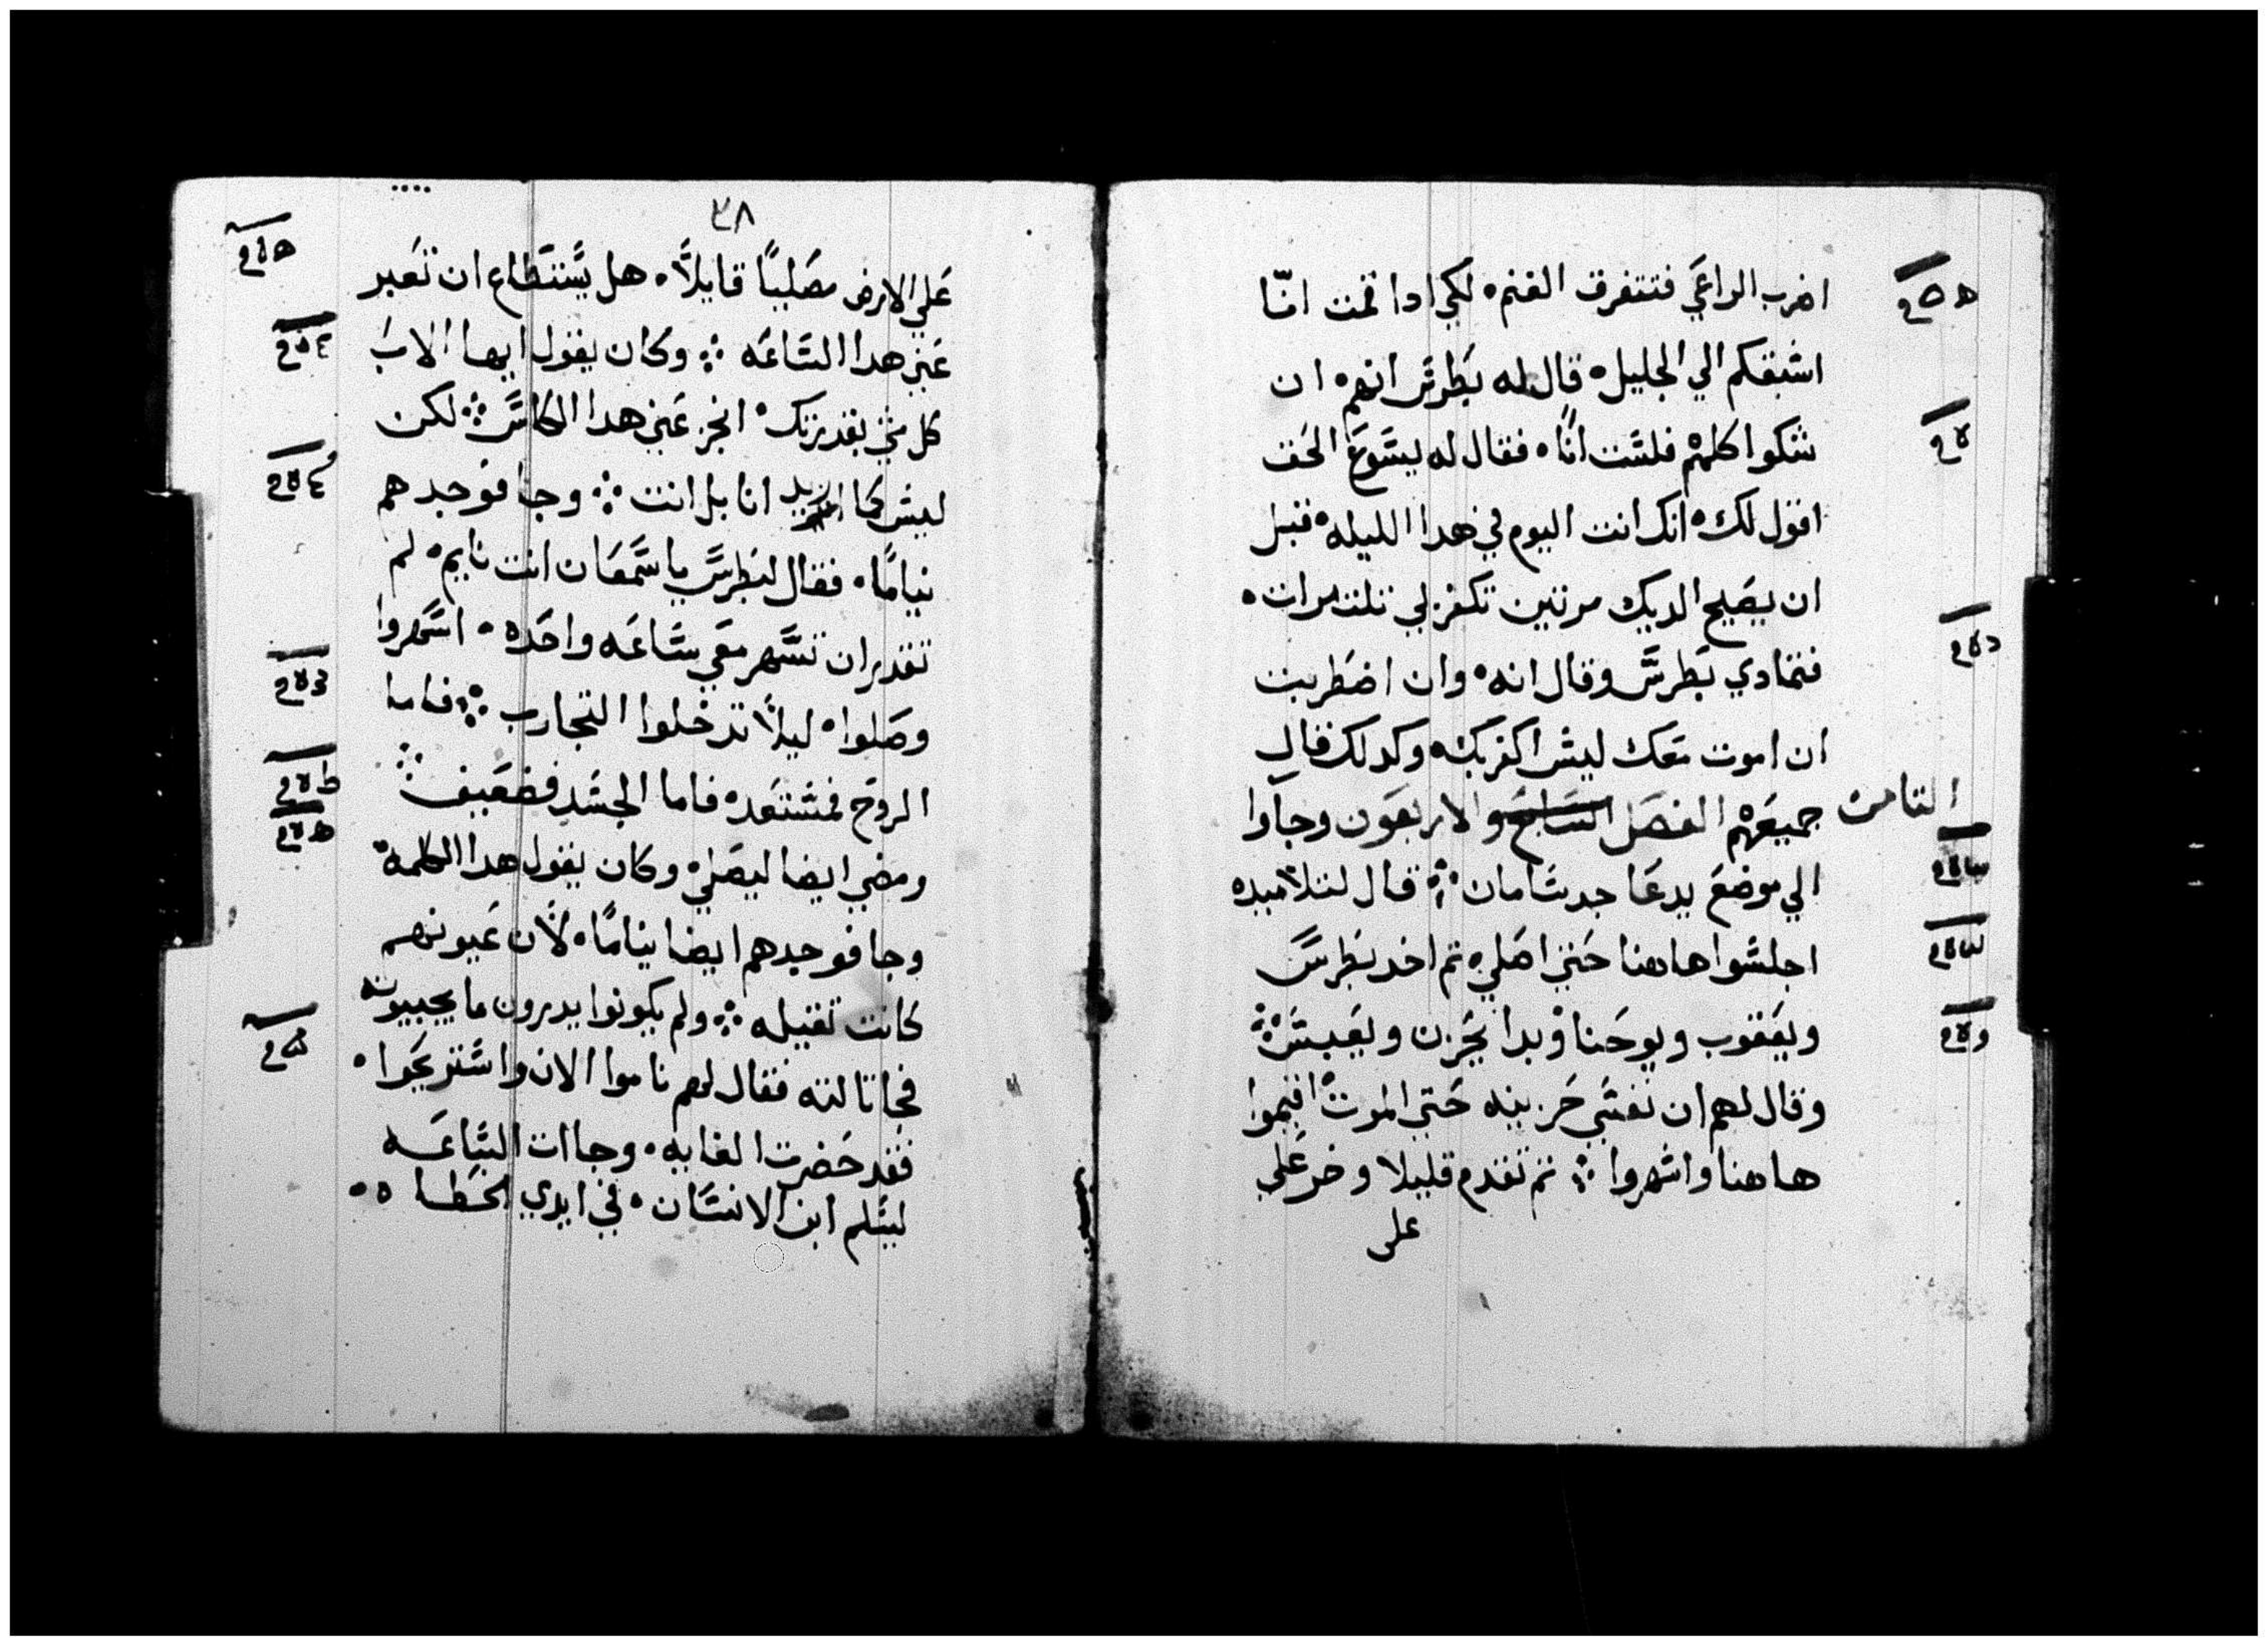 اضرب الراعَي فتتفرق الغنم ۰ لكي ادا قمت انا
اسبقكم الي الجليل ۰ قال له بَطرسَ انهم ۰ ان
شكوا كلهم فلسَت اناً ۰ فقال له يسَوعَ الحَق
اقول لك ۰ انك انت اليوم في هدا الليله ۰ قبل
ان يصَيح الديك مرتين تكفر لي تلت مرات ۰
فتمادي بَطرسَ وقال انه ۰ وان اضَطربت
ان اموت مَعَك ليسَ اكفر بك ۰ وكدلك قال
جميعَهم الفصَل السَابع والاربعَون وجاَوا
التامن
الي موضعَ يدعَا جدسَامان ⁘ قال لتلاميده
اجلسَوا هاهنا حَتي اصَلي ۰ تم اخد بَطرسَ
ويعَقوب ويوحَنا وَبدا يحَزن ويعَبسَ ⁘
وقال لهم ان نفسَي حَزينه حَتي الموت ۰ اقيموا
هاهنا واسَهروا ⁘ تم تقدم قليلا وخر عَلي
على
٣٨
عَلي الارض مصَلياً قايلاً ۰ هل يسَتطَاع ان تعَبر
عَني هدا السَاعَه ⁘ وكان يقول ايها الابَ
كل شي بقدرتك ۰ انجز عَني هدا الكاسَ ⁘ لكن
ليسَ كما اريد انا بل انت ⁘ وجا فوجدهم
نياماً ۰ فقال لبَطرسَ ياسَمعَان انت نايم ۰ لم
تقدر ان تسَهر معَي سَاعَه واحَده ۰ اسَهروا
وصَلوا ۰ ليلاً تدخلوا التجارب ⁘ فاما
الروَح فمسَتعَده فاما الجسَد فضعَيف ⁘
ومضي ايضا ليصَلي ۰ وكان يقول هدا الكلمه ۰
وجا فوجدهم ايضا نياماً ۰ لاَن عَيونهم
كانت تقيله ⁘ ولم يكونوا يدرون ما يجيبون
فجا تالته فقال لهم ناموا الان واسَتريحَوا ۰
فقد حَضرت الغايه ۰ وجاات السَاعَه
ليسَلم ابن الانسَان ۰ في ايدي الخطَا ۰۰